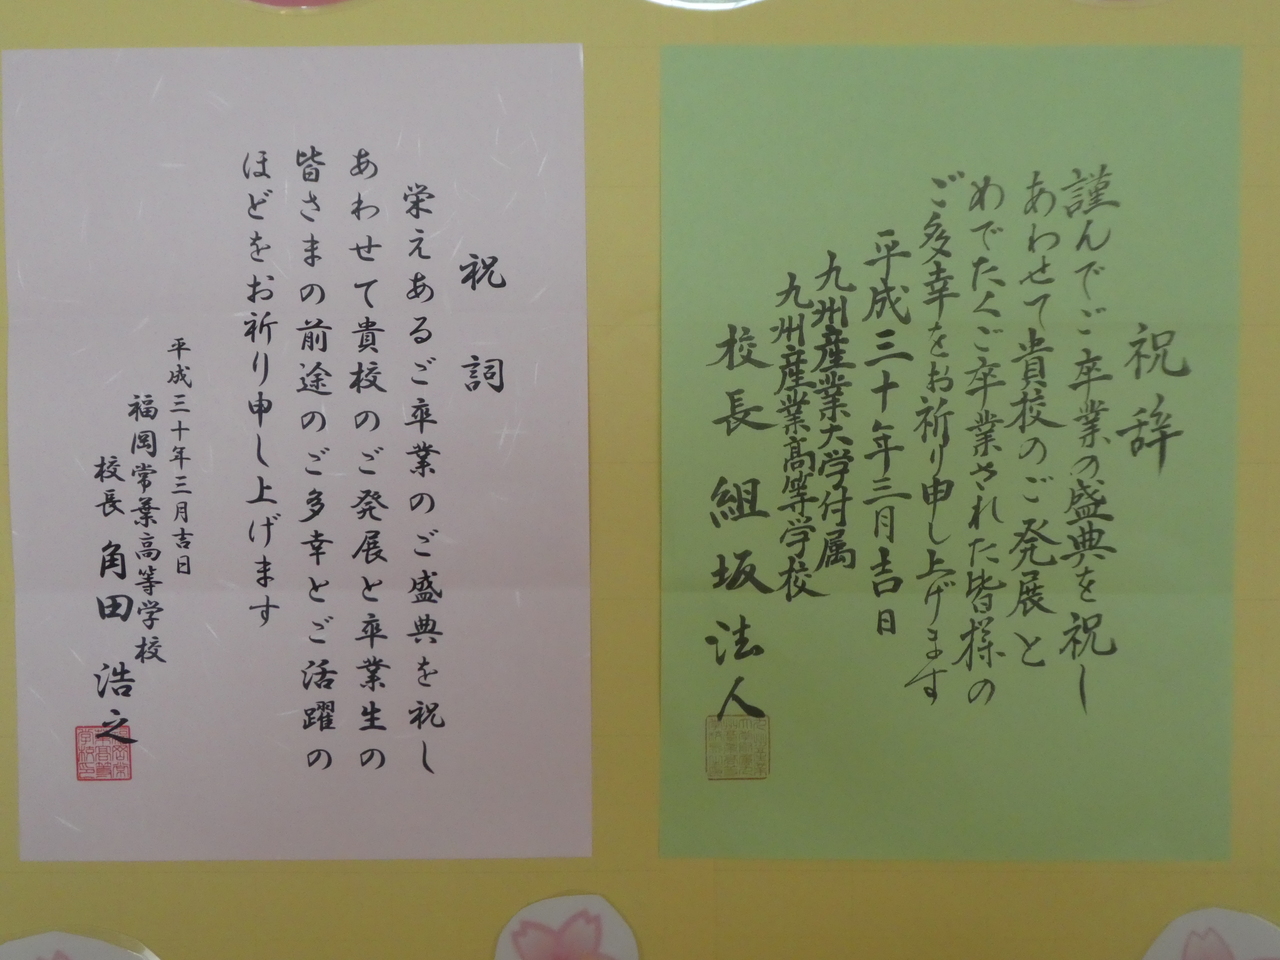 祝辞
謹んでご卒業の盛典を祝し
あわせて貴校のご発展と
めでたくご卒業された皆様の
ご多幸をお祈り申し上げます
平成三十年三月吉日
九州産業大学付属
九州産業高等学校
校長 組坂法人
祝詞
栄えあるご卒業のご盛典を祝し
あわせて貴校のご発展と卒業生の
皆さまの前途のご多幸とご活躍の
ほどをお祈り申し上げます
平成三十年三月吉日
福岡常葉高等学校
校長 角田浩之